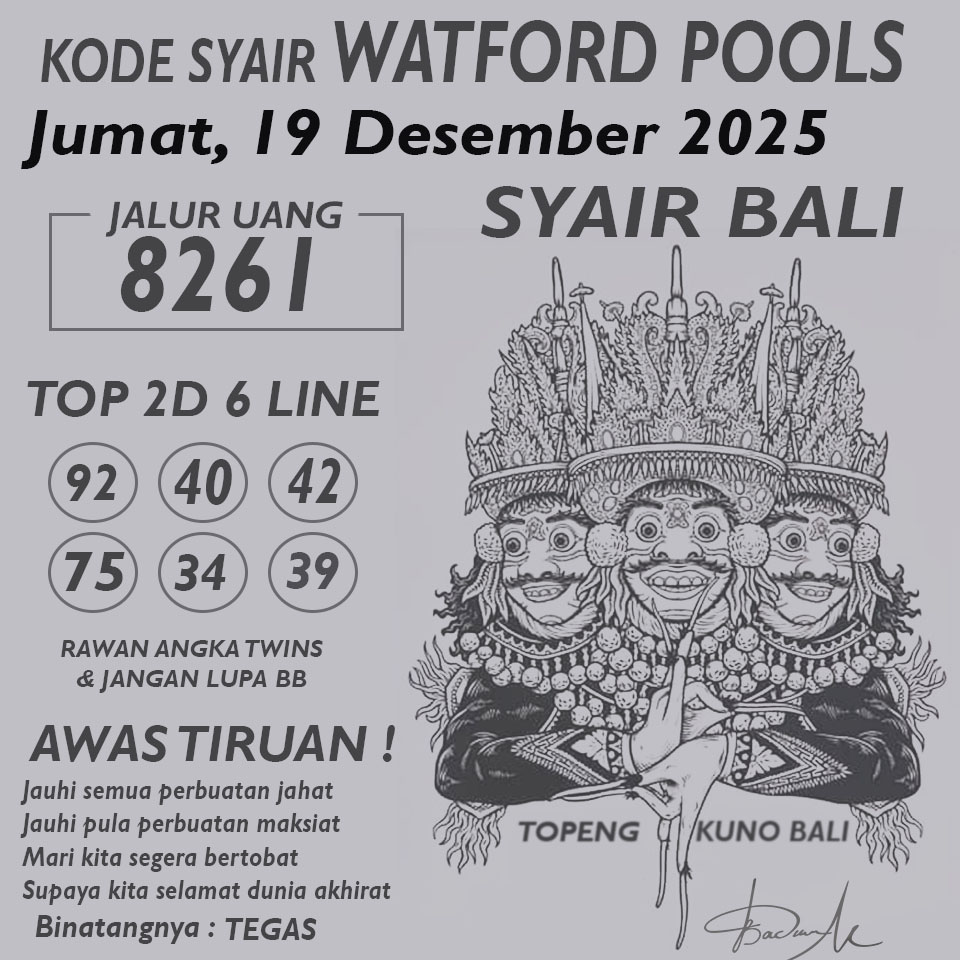 KODE SYAIR WATFORD POOLS
Jumat, 19 Desember 2025
SYAIR BALI
JALUR UANG
8261
TOP 2D 6 LINE
92 40 42
75 34 39
RAWAN ANGKA TWINS
& JANGAN LUPA BB
AWAS TIRUAN !
Jauhi semua perbuatan jahat
Jauhi pula perbuatan maksiat
Mari kita segera bertobat
Supaya kita selamat dunia akhirat
Binatangnya : TEGAS
TOPENG KUNO BALI